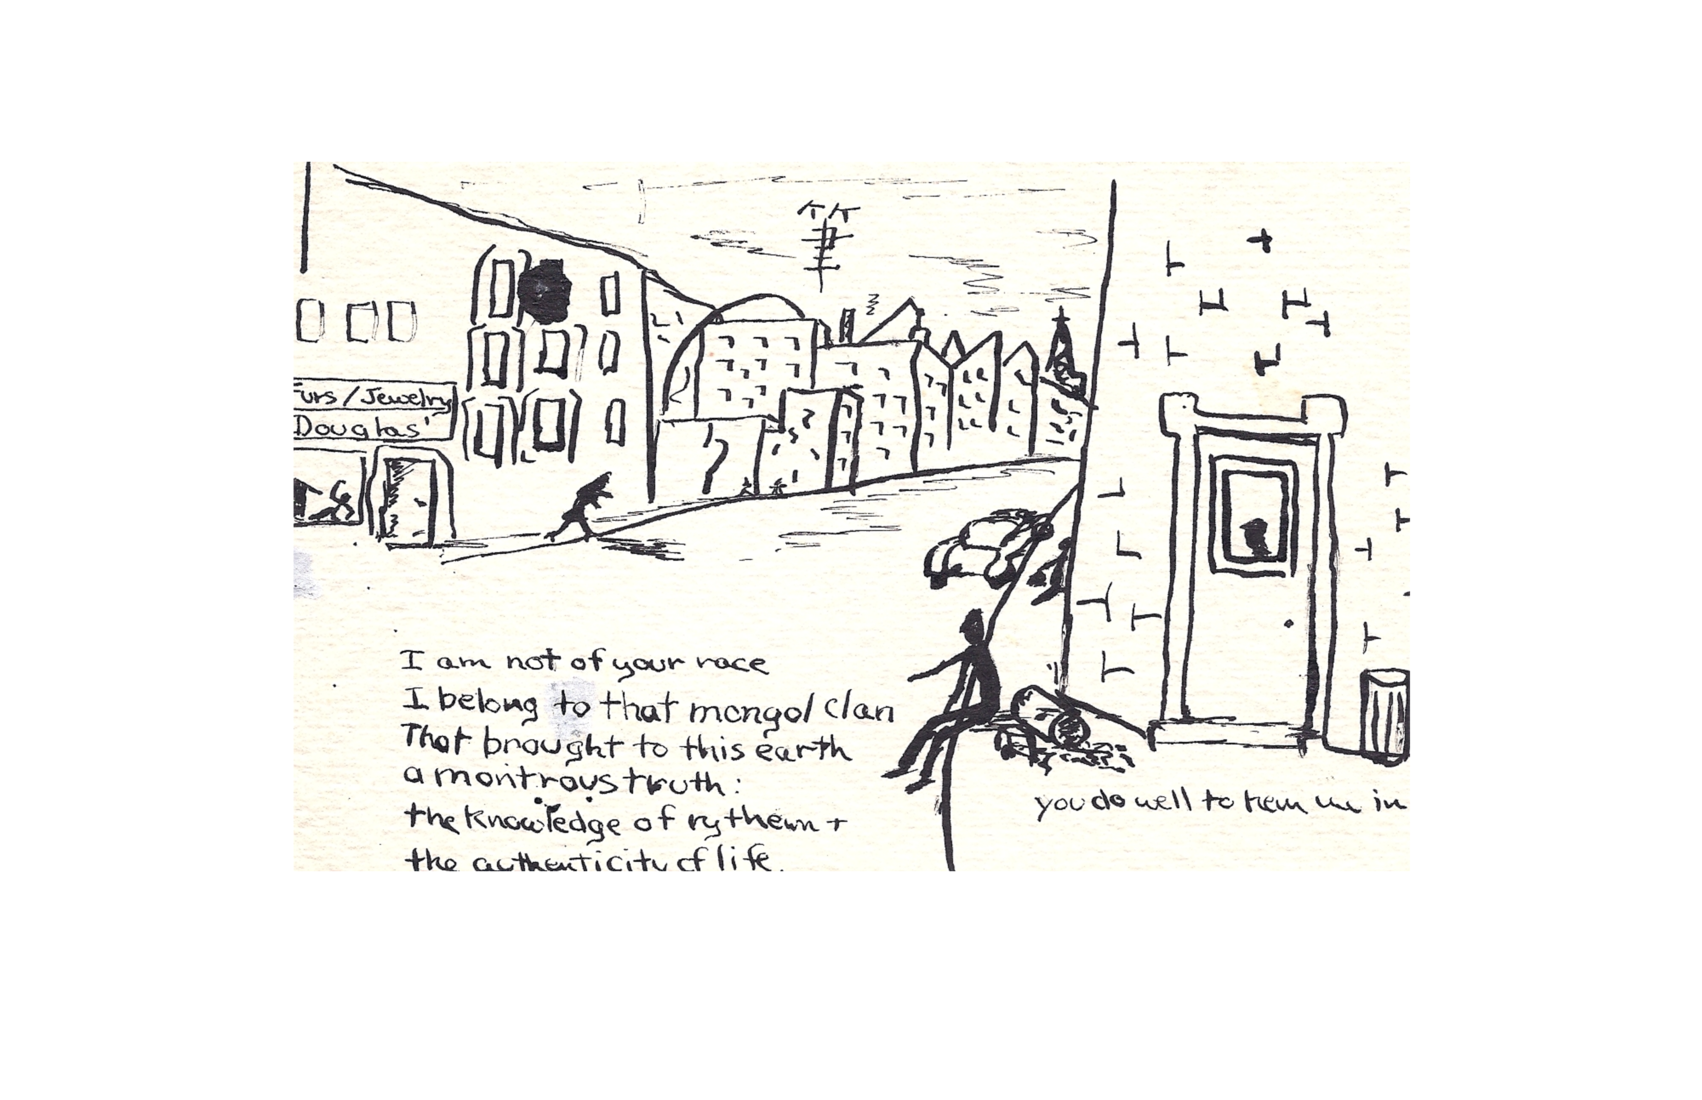 Furs/Jewelry
Douglas'
I am not of your race
I belong to that mongol clan
That brought to this earth
a montrous truth:
the knowledge of rythemn +
the authenticity of life.
you do well to hem me in